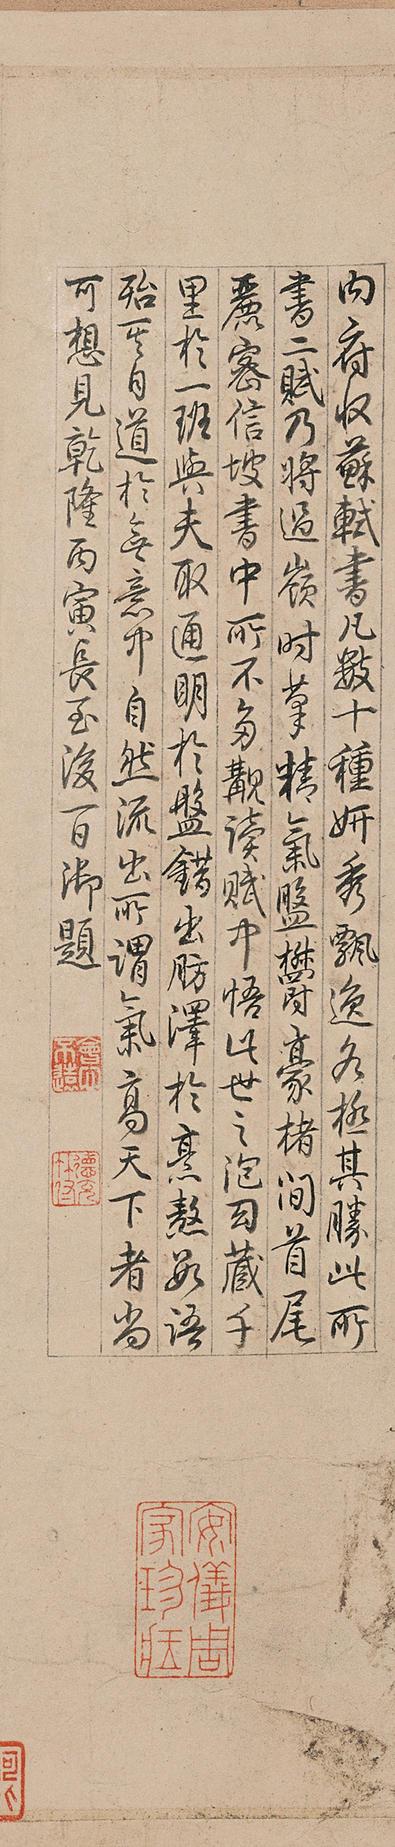 內府收蘇軾書凡數十種妍秀飄逸各極其勝此所
書二賦乃將過嶺時筆精氣盤欝豪楮間首尾
麗密信坡書中所不多覯讀賦中悟此世之泡幻藏千
里於一班與夫取通明於盤錯出肪澤於烹熬數語
殆一其自道於無意中自然流出所謂氣高天下者尚
可想見乾隆丙寅長至後一日御題
會心不遠
德充符
安儀周家珍藏